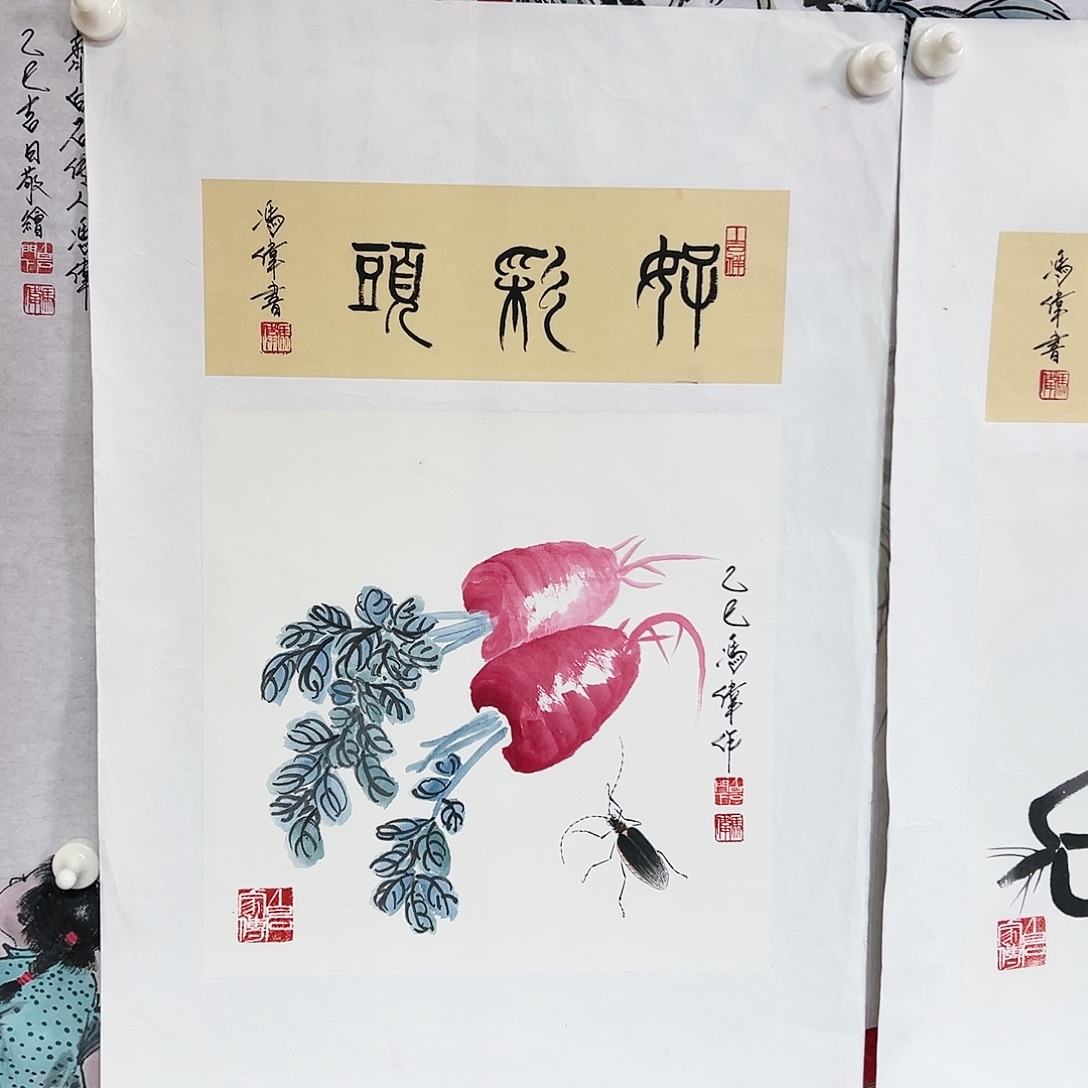 齊白石傳人馮偉
乙巳吉日敬繪
好彩頭
馮偉書
乙巳馮偉作
馮偉書